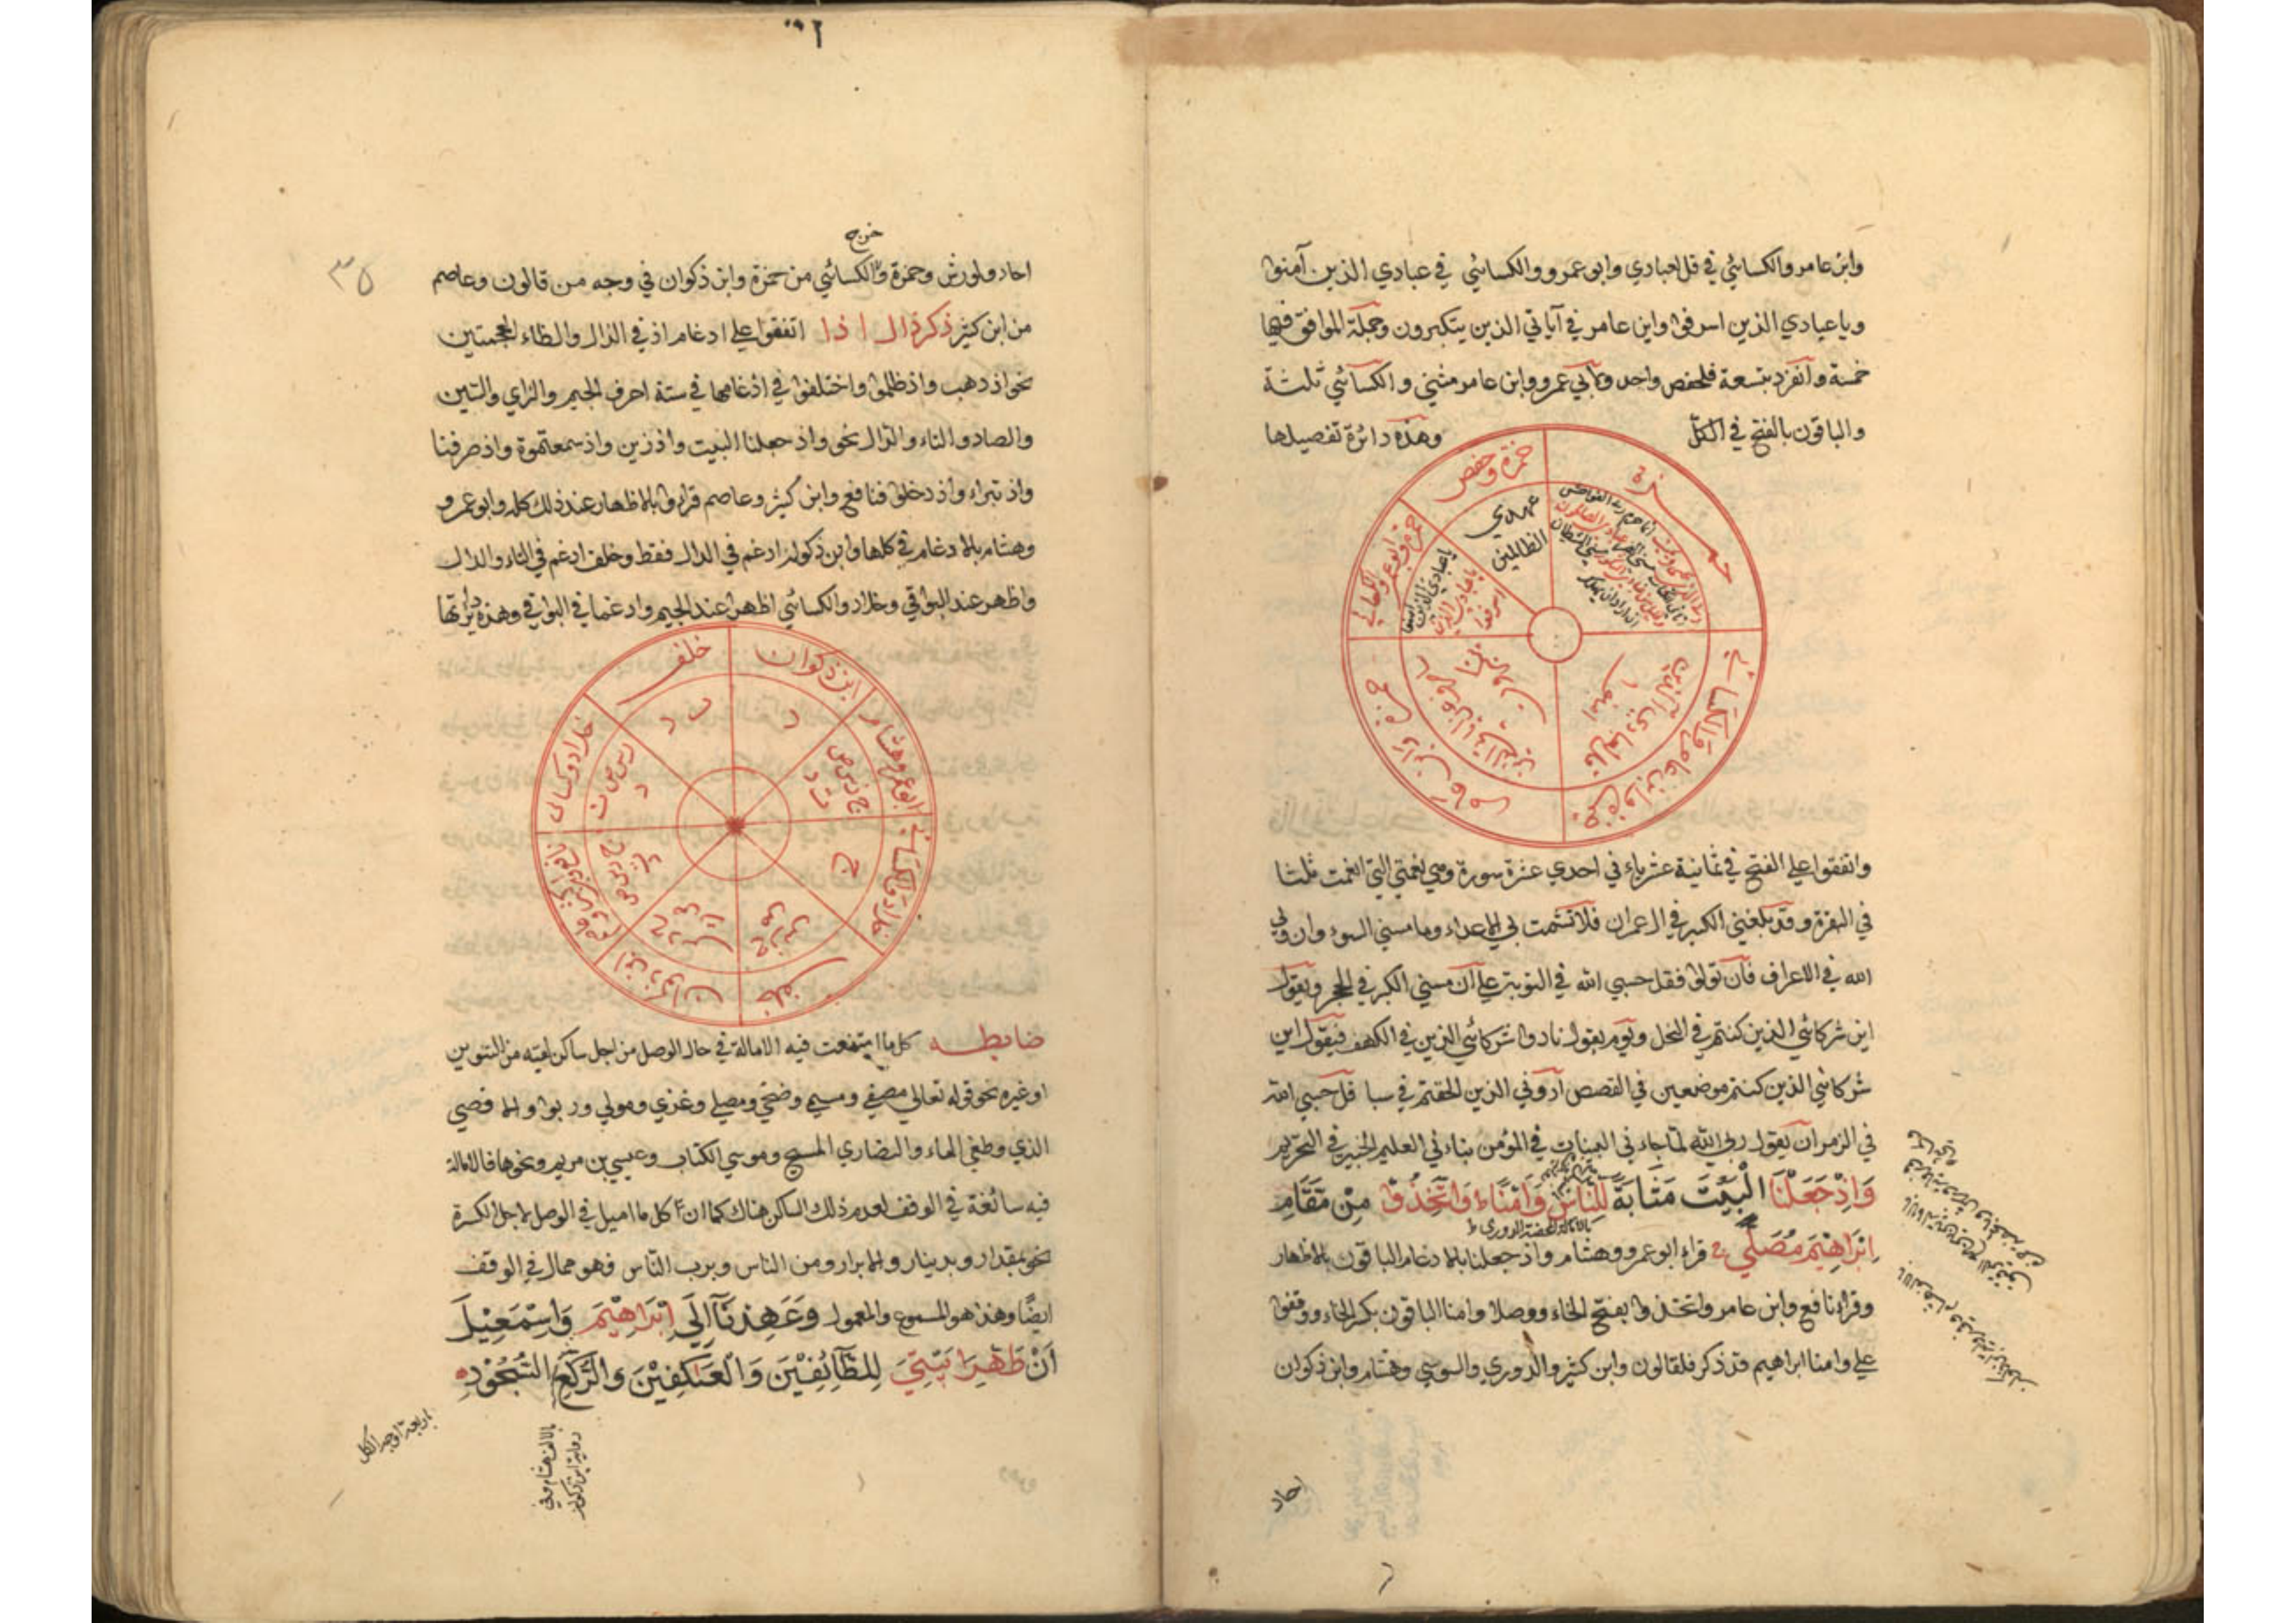 وابن عامر والكسائي في قل لعبادي وابو عمرو والكسائي في عبادي الذين آمنوا
وياعبادي الذين اسرفوا وابن عامر في آياتي الذين يتكبرون وجملة الموافق فيها
خمسة وانفرد بتسعة فلحفص واحد ولابي عمرو وابن عامر مثنى والكسائي ثلثة
والباقون بالفتح في الكل وهذه دائرة تفصيلها
حمزة
حمزة وحفص
عهدي
الظالمين
حمزة وابو عمرو والكسائي
ياعبادي الذين
اسرفوا
حمزة وابن عامر
حمزة وابن عامر والكسائي
قل لعبادي الذين
آمنوا
واتفقوا على الفتح في ثمانية عشر ياء في احدي عشرة سورة وهي نعمتي التي انعمت ثلثا
في البقرة وقد بلغني الكبر في ال عمران فلا تشمت بي الاعداء وما مسني السوء وان ولي
الله في الاعراف فان تولوا فقل حسبي الله في التوبة على ان مسني الكبر في الحجر ويقول
اين شركائي الذين كنتم في النحل ويوم يقول نادوا شركائي الذين في الكهف فيقول اين
شركائي الذين كنتم موضعين في القصص اروني الذين الحقتم في سبا قل حسبي الله
في الزمر ان يقول ربي الله لما جاءني البينات في المؤمن نباءني العليم الخبير في التحريم
وَاِذْ جَعَلْنَا الْبَيْتَ مَثَابَةً لِلنَّاسِ وَاَمْنًا وَاتَّخِذُوا مِنْ مَقَامِ
اِبْرَاهِيمَ مُصَلًّى قراء ابو عمرو وهشام واذ جعلنا بالادغام الباقون بالاظهار
وقراء نافع وابن عامر واتخذوا بفتح الخاء ووصلا وامنا الباقون بكسر الخاء ووقفوا
على وامنا ابراهيم قد ذكر فلقالون وابن كثير والدوري والسوسي وهشام وابن ذكوان
احاد
٣٥
خرج
احاد ولورش وحمزة والكسائي من حمزة وابن ذكوان في وجه من قالون وعاصم
من ابن كثير ذكر ذال اذا اتفقوا على ادغام اذ في الذال والظاء المعجمتين
نحو اذ ذهب واذ ظلموا واختلفوا في ادغامها في ستة احرف الجيم والزاي والسين
والصاد والتاء والدال نحو واذ جعلنا البيت واذ زين واذ سمعتموه واذ صرفنا
واذ تبراء واذ دخلوا فنافع وابن كثير وعاصم قراوا بالاظهار عند ذلك كله وابو عمرو
وهشام بالادغام في كلها وابن ذكوان ادغم في الدال فقط وخلف ادغم في التاء والدال
واظهر عند البواقي وخلاد والكسائي اظهرا عند الجيم وادغما في البواقي وهذه دائرتها
ابن ذكوان
د
خلف
ت د
ابو عمرو هشام
ج ز س ص
ت د
خلاد وكسائي
ز س ص ت
د
خلاد والكسائي
ج
خلف
ابن ذكوان
ضابطه كل ما امتنعت فيه الامالة في حال الوصل من اجل ساكن لقيه من التنوين
او غيره نحو قوله تعالى مصفى ومسمى وضحى ومصلى وغزى ومولى وربوا والاقصى
الذي وطغى الماء والنصارى المسيح وموسى الكتاب وعيسى بن مريم ونحوها فالامالة
فيه سائغة في الوقف لعدم ذلك الساكن هناك كما ان كل ما اميل في الوصل لاجل الكسرة
نحو بمقدار وبدينار والابرار ومن الناس وبرب الناس فهو ممال في الوقف
ايضا وهذا هو المسموع والمعمول وَعَهِدْنَا اِلَى اِبْرَاهِيمَ وَاِسْمَعِيلَ
اَنْ طَهِّرَا بَيْتِيَ لِلطَّائِفِينَ وَالْعَاكِفِينَ وَالرُّكَّعِ السُّجُودِ
اربعة اوجه الكل
بالالف هشام وفي
رواية ابن ذكوان